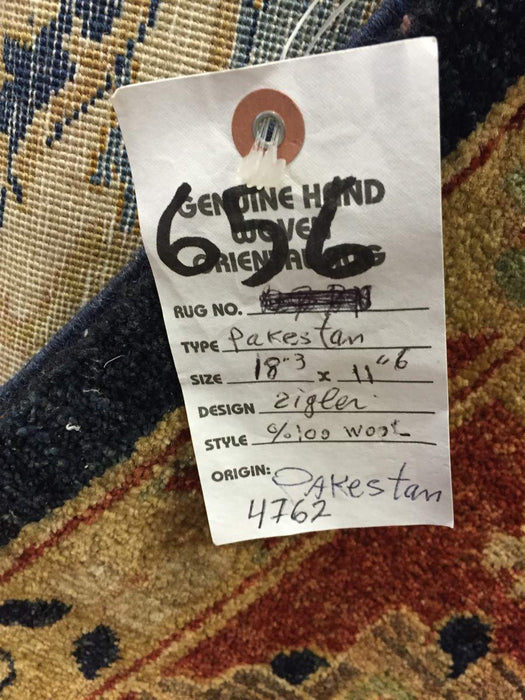 GENUINE HAND
WOVEN
ORIENTAL RUG
656
RUG NO.
TYPE Pakestan
SIZE 18"3 x 11"6
DESIGN zigler
STYLE %100 wool
ORIGIN: PAKestan
4762